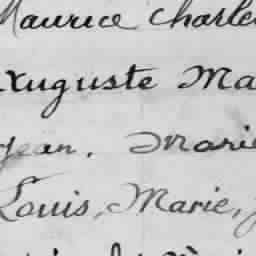 Maurice Charle
Auguste Ma
Jean. Marie
Louis, Marie, J